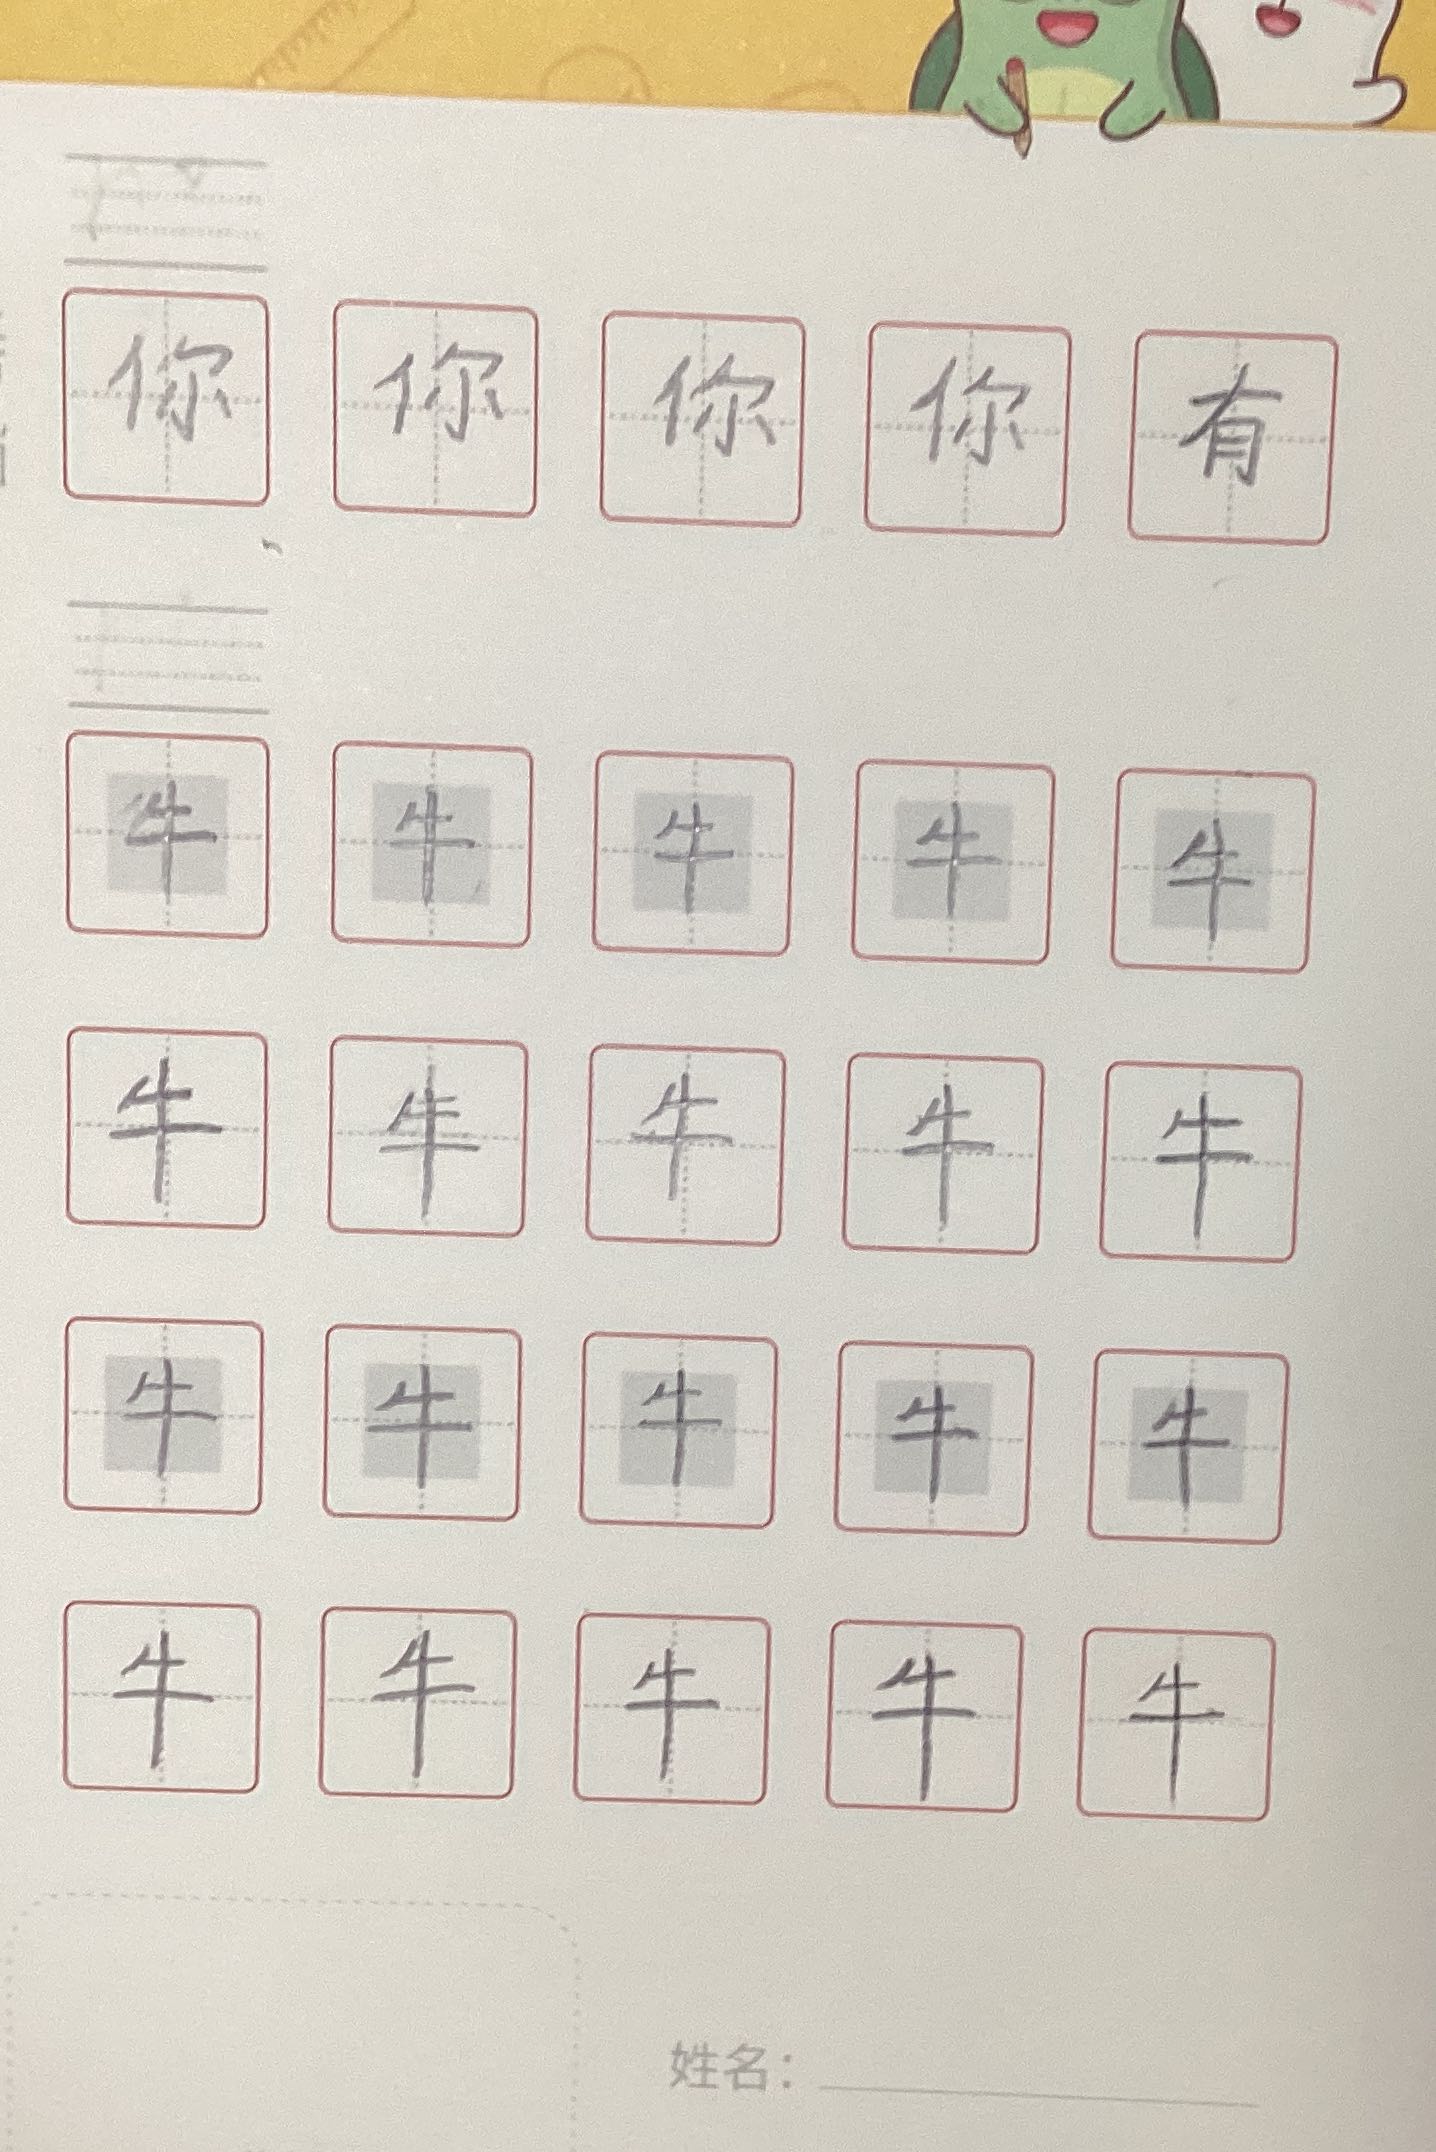 你 你 你 你 有
牛 牛 牛 牛 牛
牛 牛 牛 牛 牛
牛 牛 牛 牛 牛
牛 牛 牛 牛 牛
姓名：